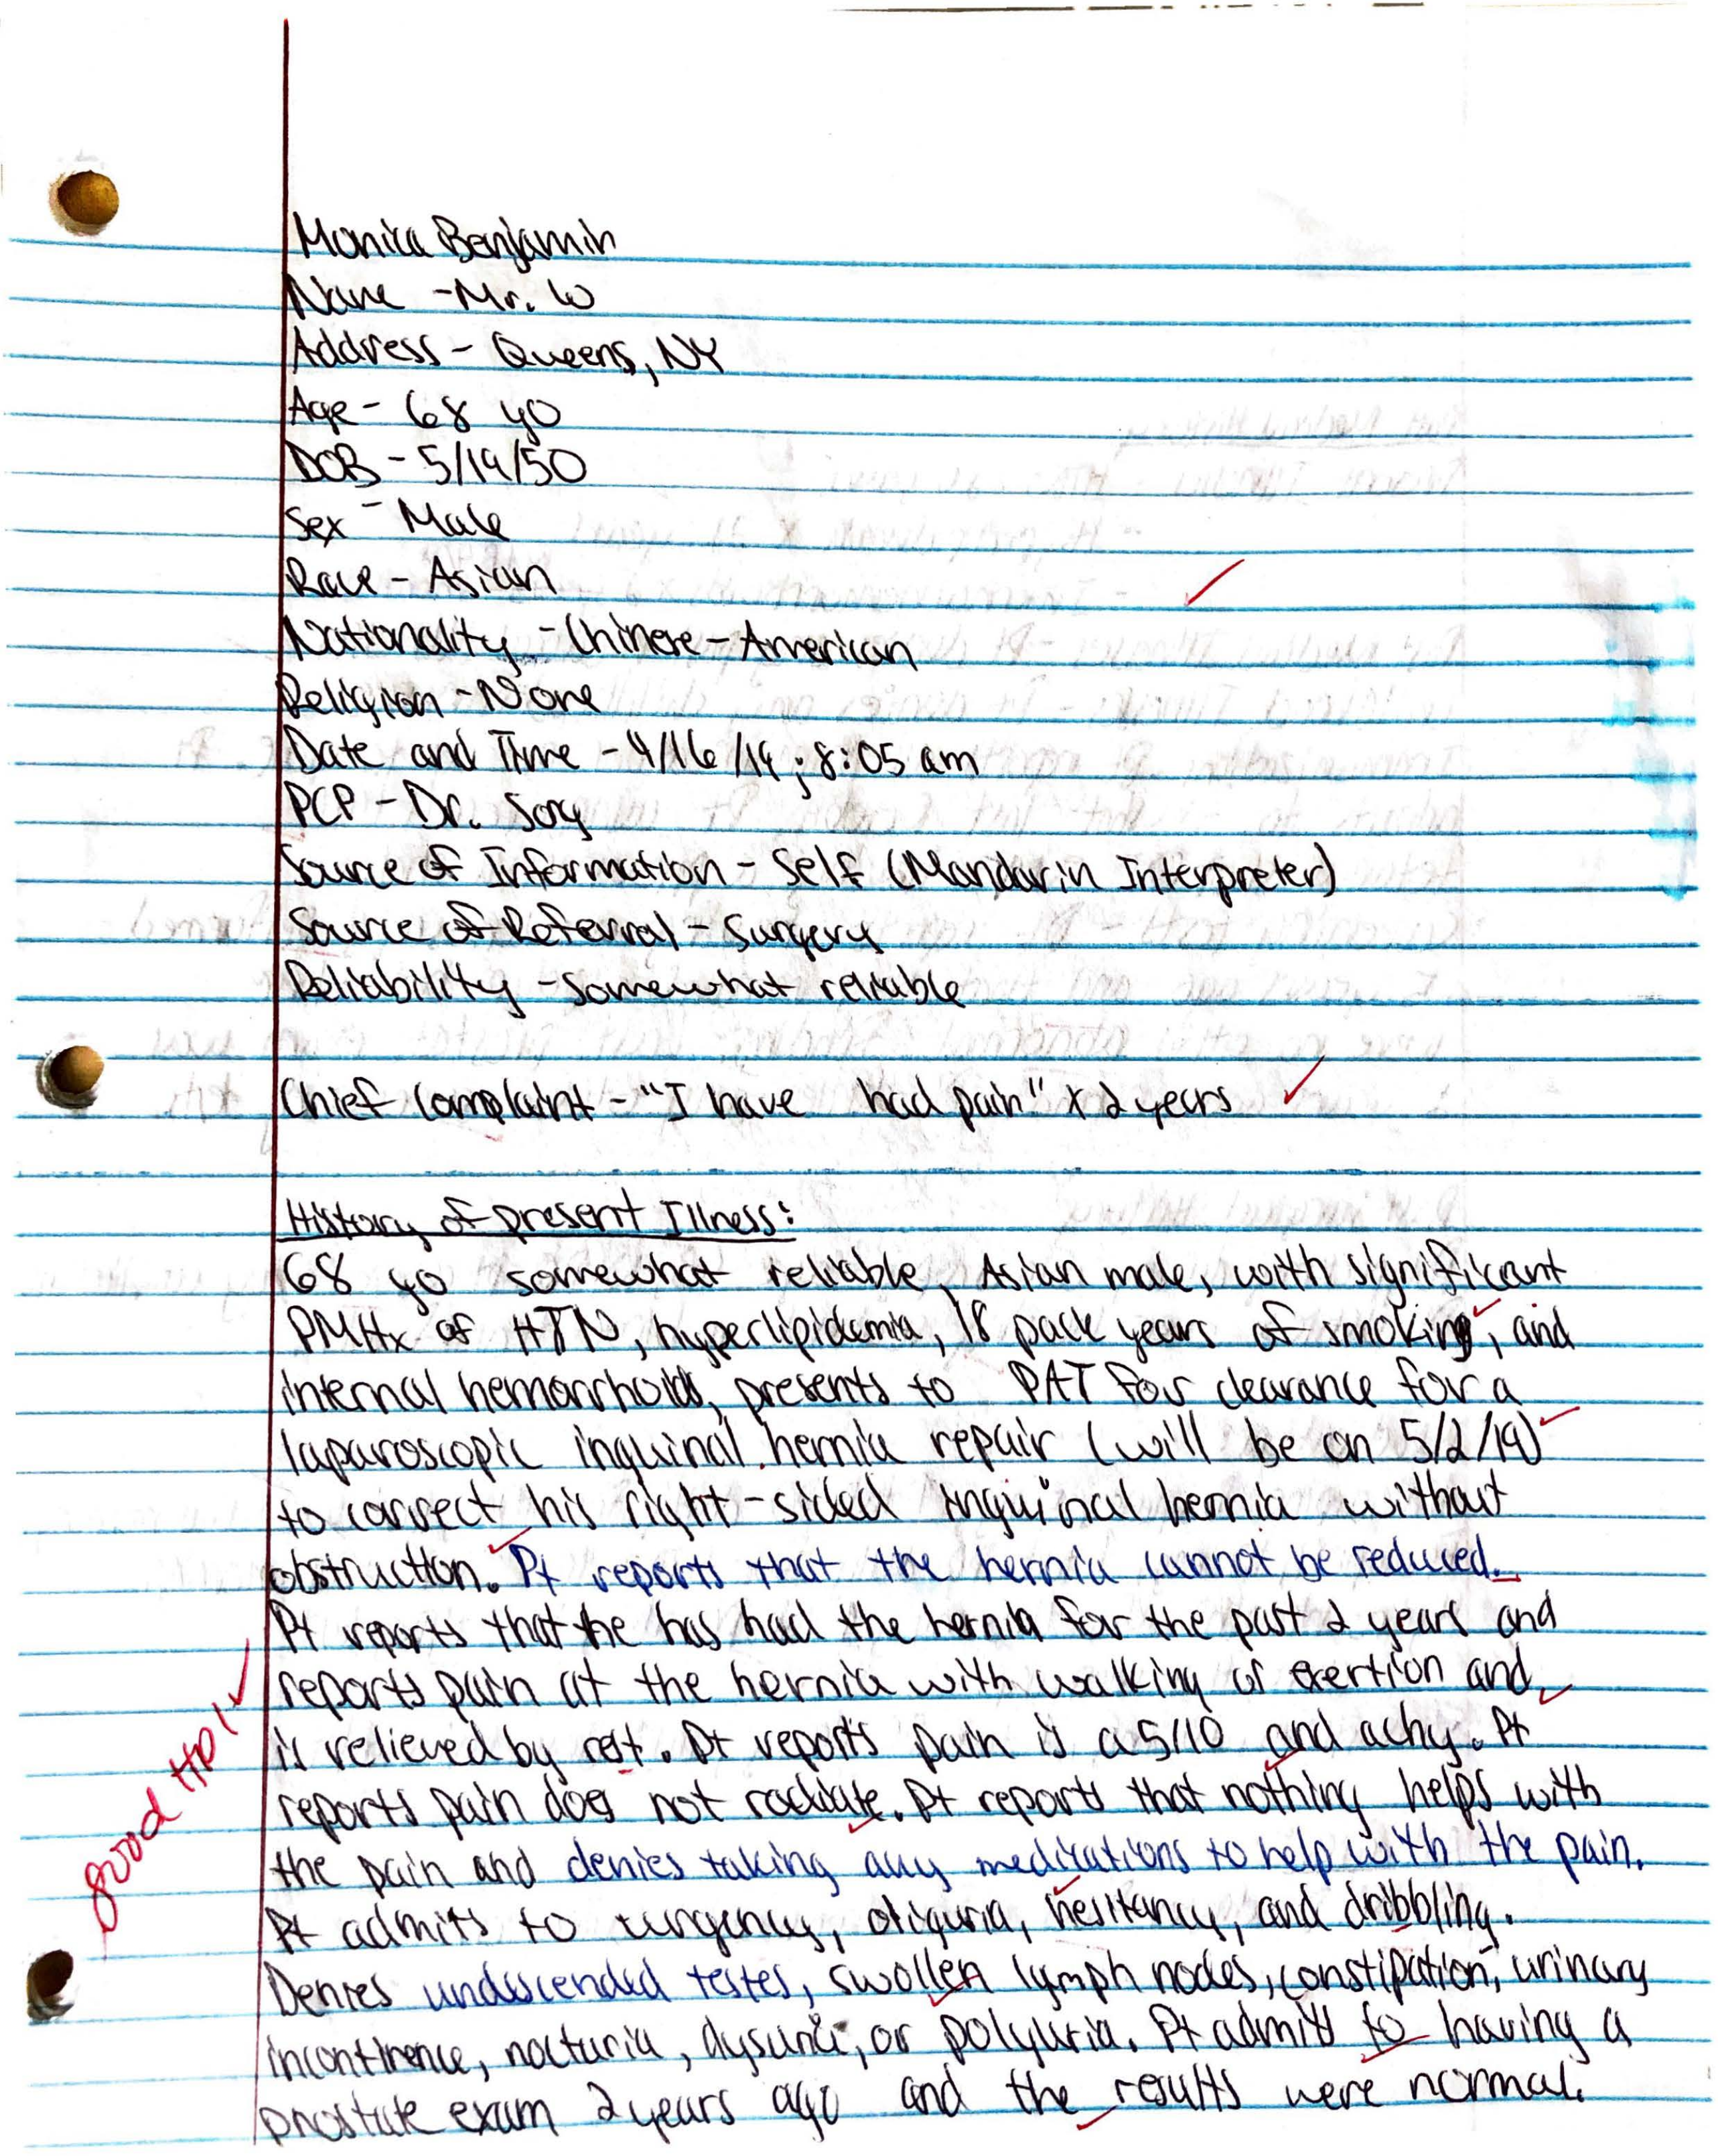 Monica Benjamin
Name - Mr. W
Address - Queens, NY
Age - 68 yo
DOB - 5/19/50
Sex - Male
Race - Asian
Nationality - Chinese-American
Religion - None
Date and Time - 4/16/19; 8:05 am
PCP - Dr.
Source of Information - Self (Mandarin Interpreter)
Source of Referral - Surgery
Reliability - somewhat reliable
Chief Complaint - "I have had pain" x 2 years
History of present Illness:
68 yo somewhat reliable, Asian male, with significant
PMHx of HTN, hyperlipidemia, 18 pack years of smoking, and
internal hemorrhoids, presents to PAT for clearance for a
laparoscopic inguinal hernia repair (will be on 5/2/19)
to correct his right-sided inguinal hernia without
obstruction. Pt reports that the hernia cannot be reduced.
Pt reports that he has had the hernia for the past 2 years and
reports pain at the hernia with walking or exertion and
is relieved by rest. Pt reports pain is a 5/10 and achy. Pt
reports pain does not radiate. Pt reports that nothing helps with
the pain and denies taking any medications to help with the pain.
Pt admits to urgency, oliguria, hesitancy, and dribbling.
Denies undescended testes, swollen lymph nodes, constipation, urinary
incontinence, nocturia, dysuria, or polyuria. Pt admits to having a
prostate exam 2 years ago and the results were normal.
good HPI